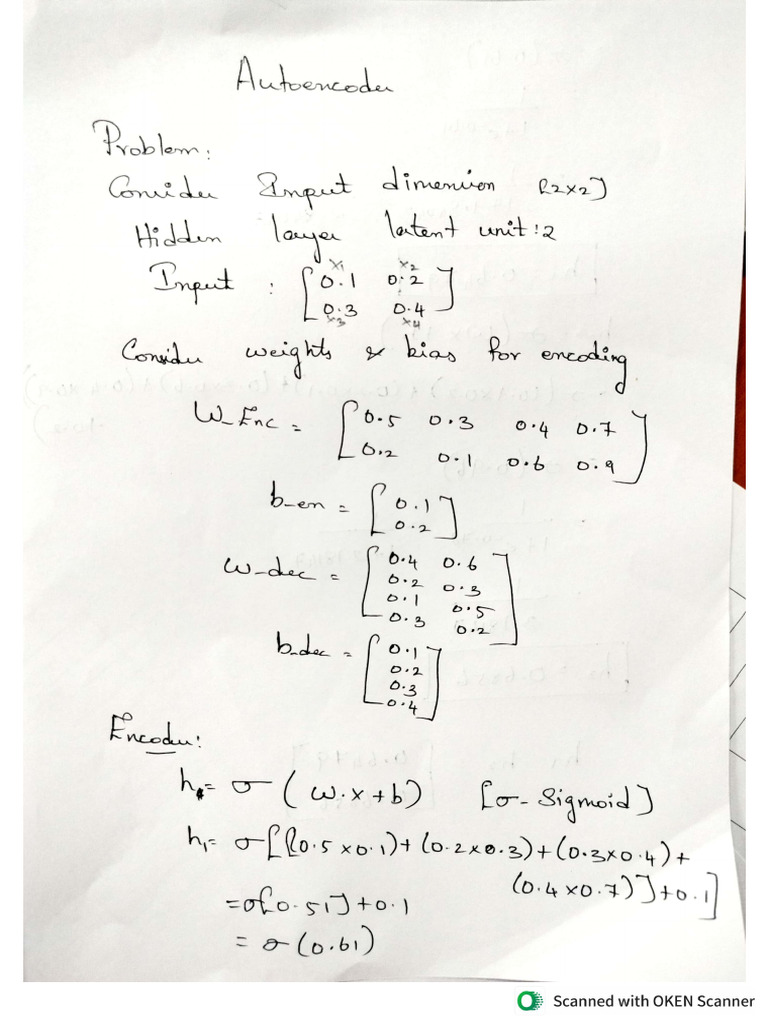 Autoencoder
Problem:
Consider Input dimension [2x2]
Hidden layer latent unit: 2
x1 x2
Input : [0.1 0.2
0.3 0.4]
x3 x4
Consider weights & bias for encoding
W_Enc = [0.5 0.3 0.4 0.7
0.2 0.1 0.6 0.9]
b_en = [0.1
0.2]
w_dec = [0.4 0.6
0.2 0.3
0.1 0.5
0.3 0.2]
b_dec = [0.1
0.2
0.3
0.4]
Encoder:
h = σ (w.x+b) [σ- Sigmoid]
h1= σ[[(0.5 x0.1)+(0.2x0.3)+(0.3x0.4)+
(0.4x0.7)]+0.1]
=σ[0.51]+0.1
= σ(0.61)
Scanned with OKEN Scanner